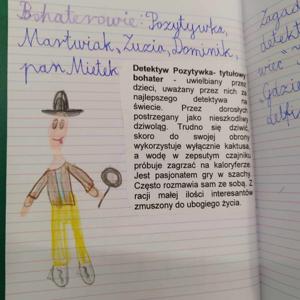 Bohaterowie: Pozytywka,
Martwiak, Zuzia, Dominik,
pan Mietek
Detektyw Pozytywka- tytułowy
bohater - uwielbiany przez
dzieci, uważany przez nich za
najlepszego detektywa na
świecie. Przez dorosłych
postrzegany jako nieszkodliwy
dziwoląg. Trudno się dziwić,
skoro do swojej obrony
wykorzystuje wyłącznie kaktusa,
a wodę w zepsutym czajniku
próbuje zagrzać na kaloryferze.
Jest pasjonatem gry w szachy.
Często rozmawia sam ze sobą. Z
racji małej ilości interesantów
zmuszony do ubogiego życia.
Zagad
detekt
wec"
„Gdzie
delfi